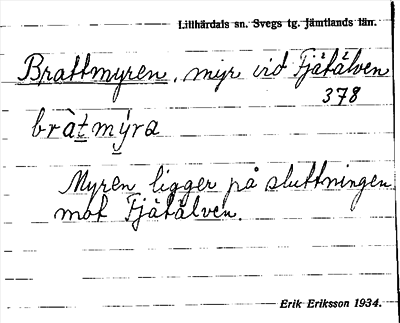 Lillhärdals sn. Svegs tg. Jämtlands län.
Brattmyren, myr vid Fjätälven
378
bràt̠mýra
Myren ligger på sluttningen
mot Fjätälven.
Erik Eriksson 1934.